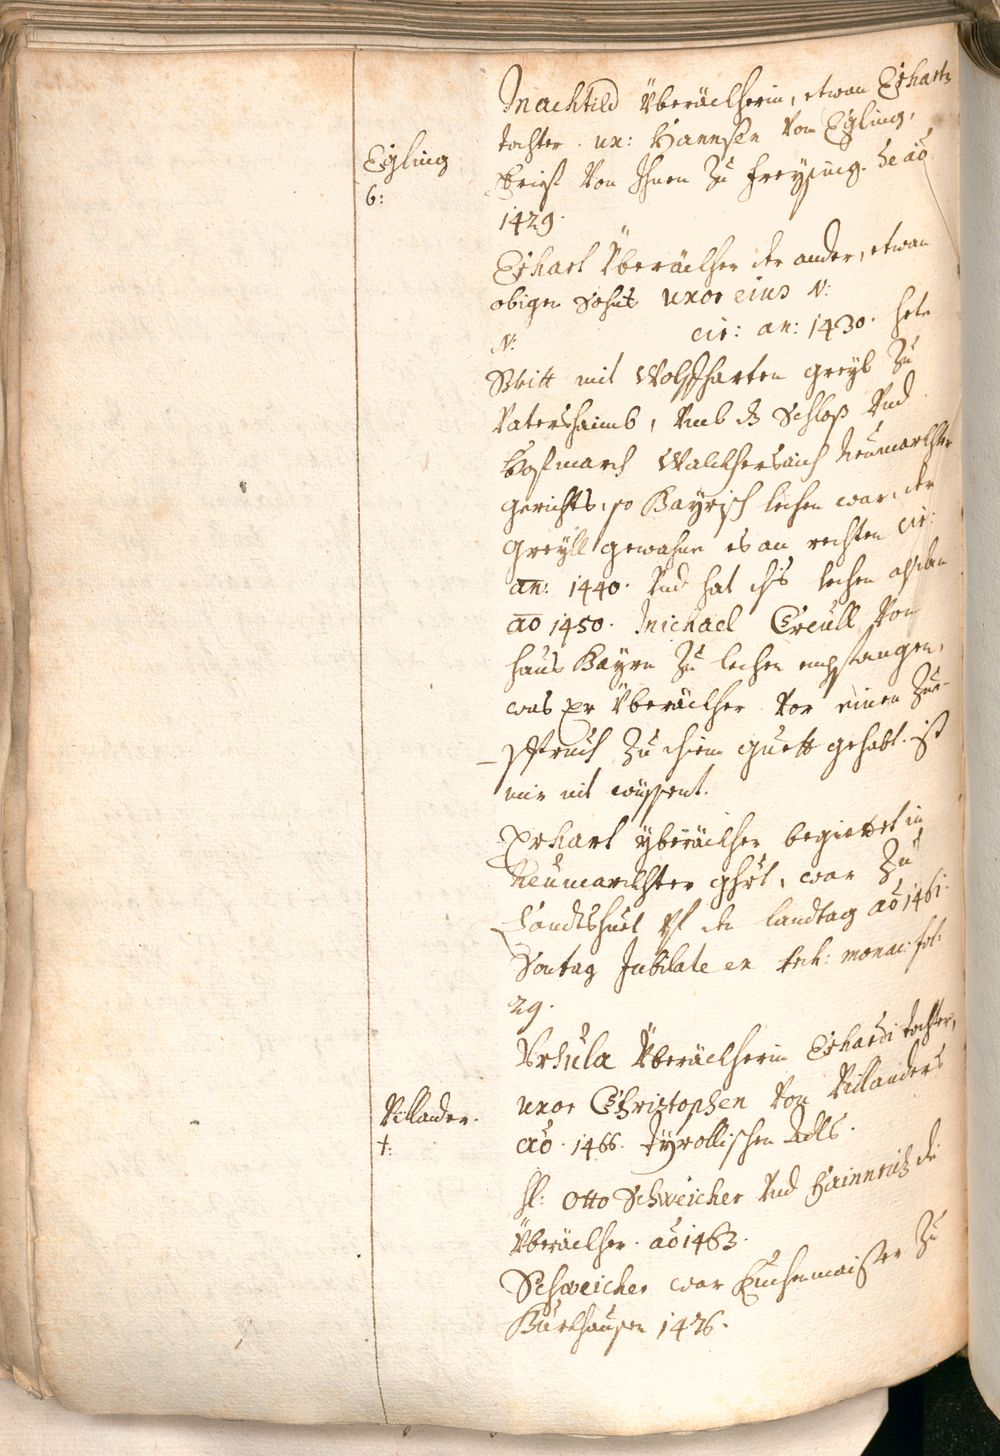 Machtild Überäckherin, etwan Erharts
Egling
tochter. ux: Hannsen von Egling,
6:
brief von Ihnen zu Freysing. de aõ
1429.
Erhart Überäckher der ander, etwan
obigen Sohn uxor eius N:
N: cir: an: 1430. hete
Stritt mit Wolfharten Greyl zu
Vatershaimb, umb dz Schloß und
Hofmarch Walckhersaich Neumarckhter
gerichts, so Bayrisch lechen war, der
Greyll gewahne es an rechten cir:
an: 1440. und hat diß lechen alßdan
ao 1450. Michael Greull vom
hauß Bayrn zu lechen empfangen,
was Er Überäckher vor einen Zue-
spruch zu disem guett gehabt. ist
mir nit wüssent.
Erhart yberäckher begiettet in
Neumarckhter ghrt, war zu
Landtshuet uf den landtag aõ 1461.
Sontag Jubilate ex monac: fol:
29.
Ursula Überäckherin Erhardi tochter,
Villander.
uxor Christophen von Villanders
†:
aõ. 1466. Tyrollischen Adls.
H: Otto Schweicher und Hainrich die
Überäckher. aõ 1463.
Schweicher war Kuchenmaister zu
Burkhausen 1476.